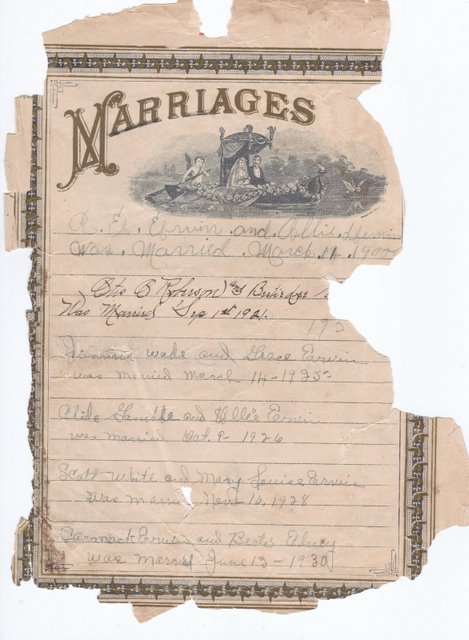 MARRIAGES
R. E. Erwin and Ollie
Was Married March 11 1900
Otis B Roberson and
Was Married Sep 1st 1921.
192
wade and Grace Erwin
was married March 14-1925-
and Ollie Erwin
was married Oct. 9- 1926
Scott White and Mary Louise Erwin
was married Nov 10, 1928
Carmack Erwin and Berta
was married June 13-1930